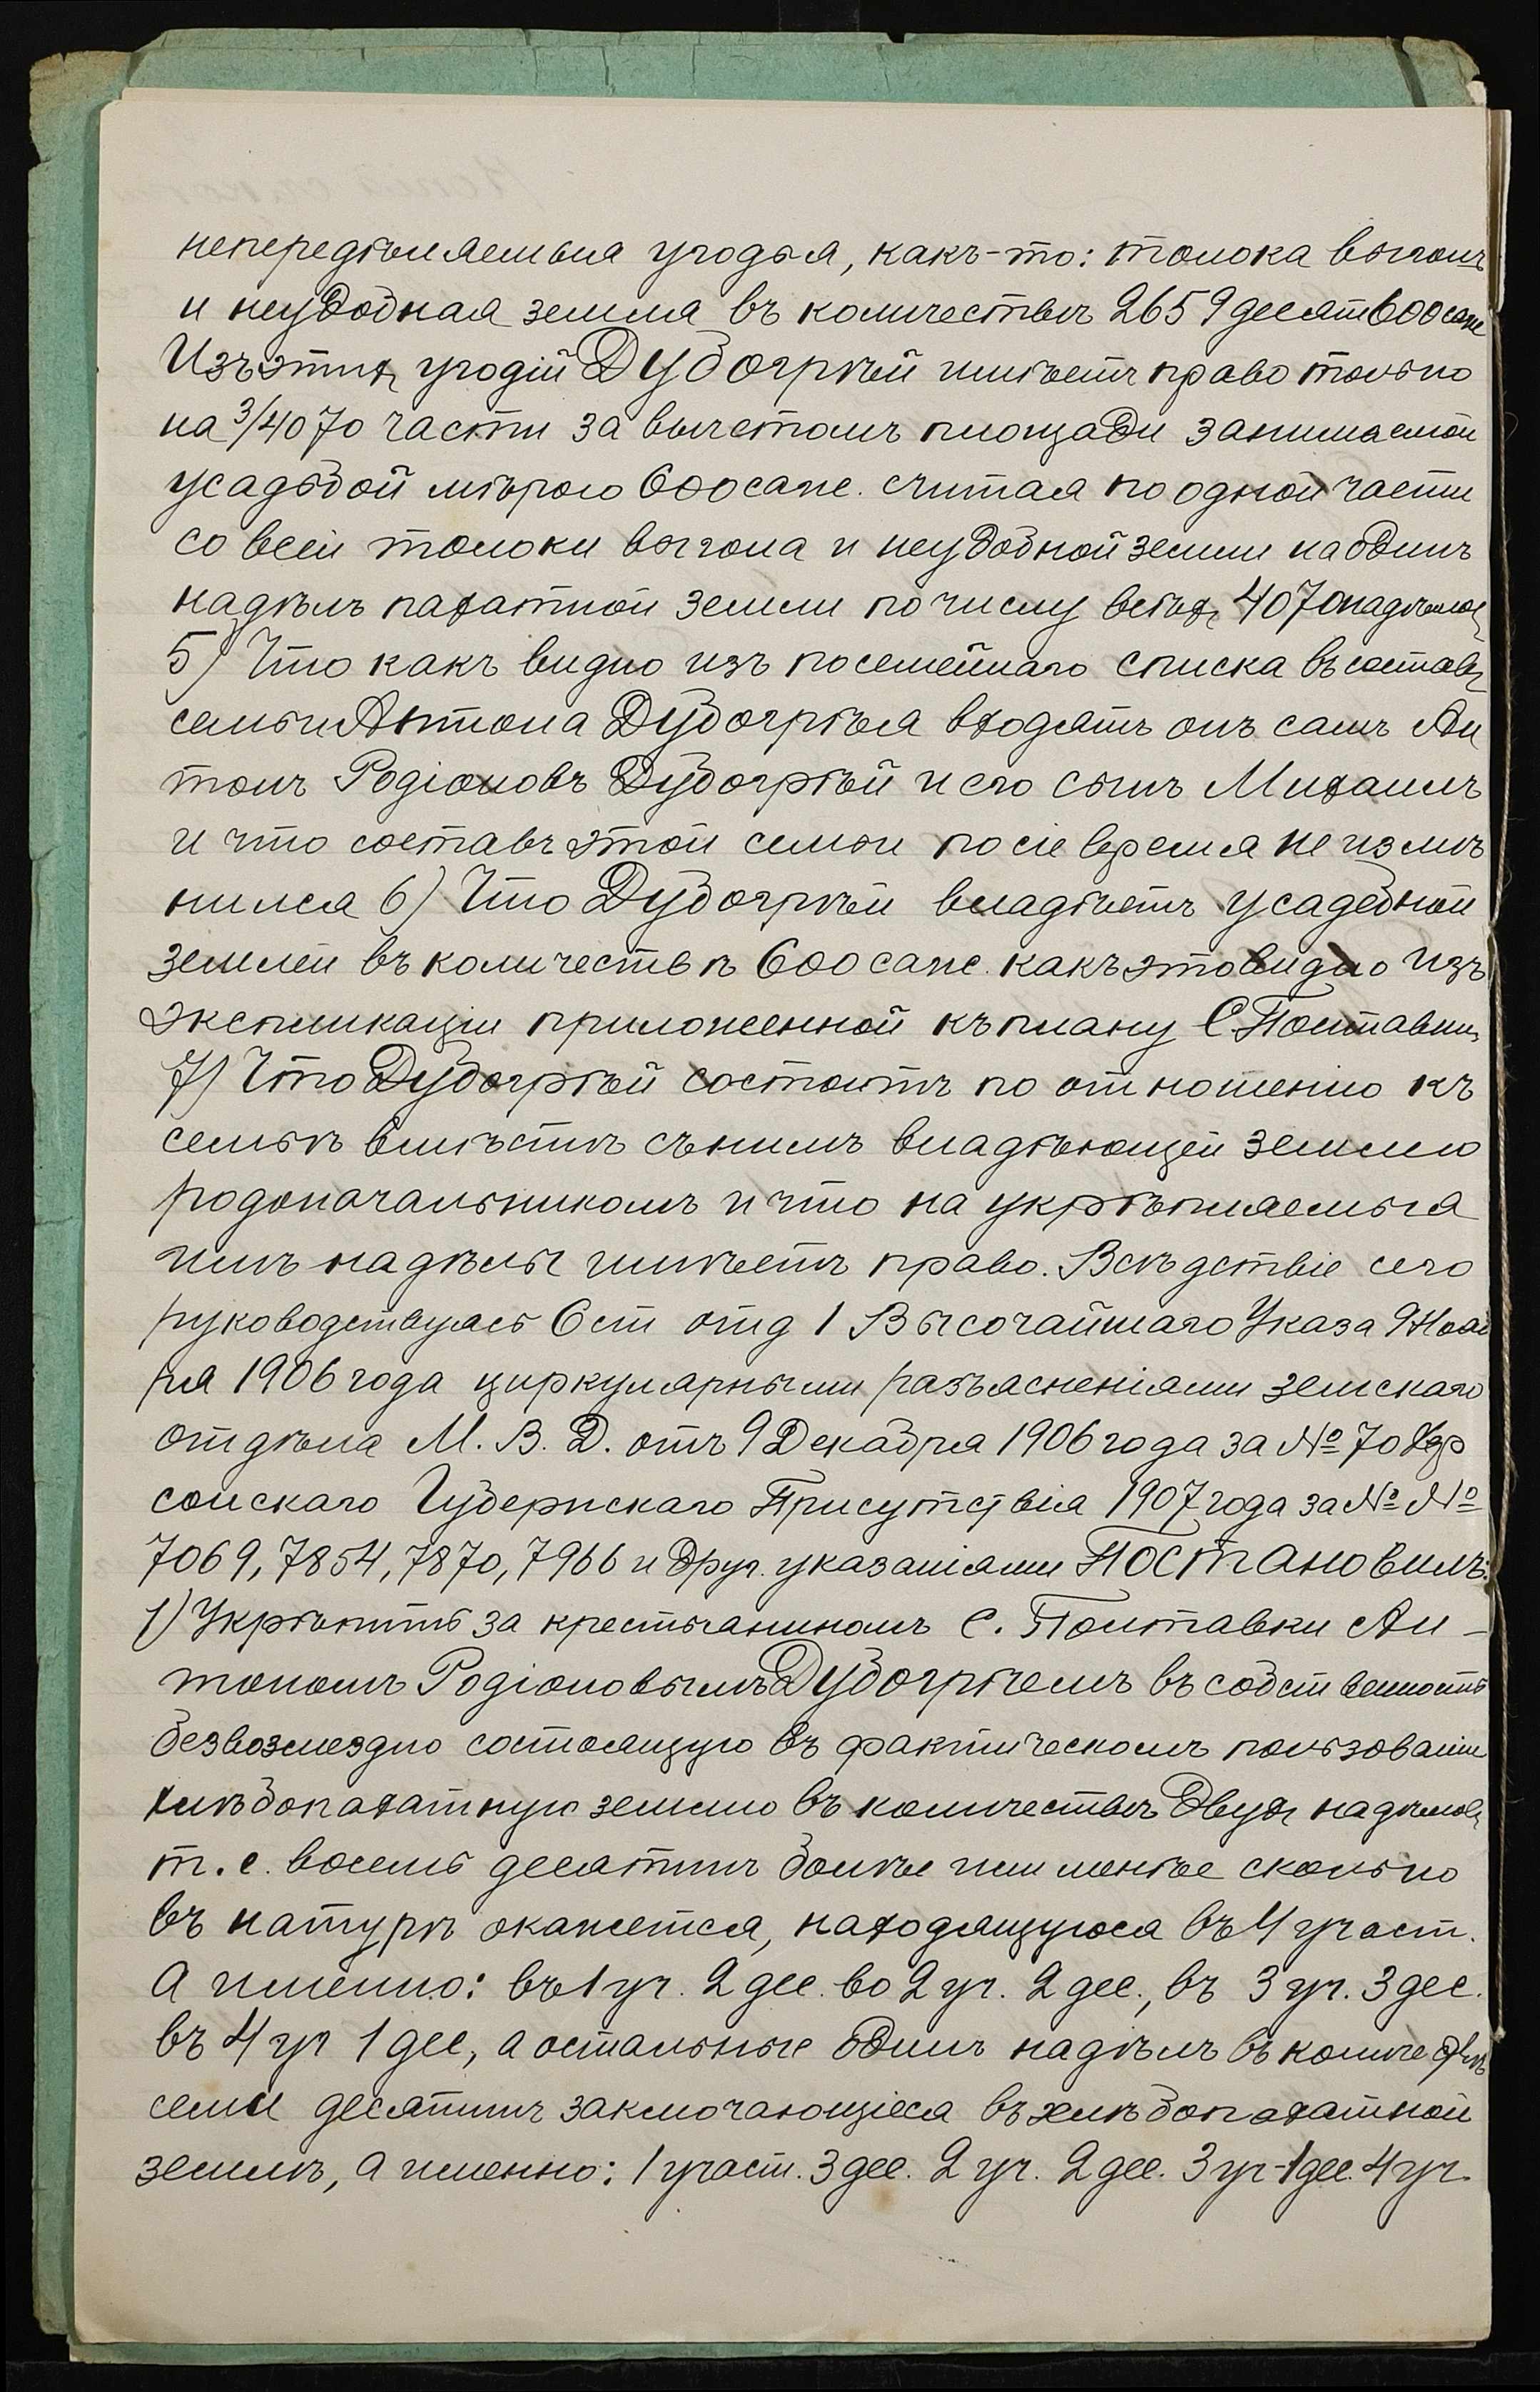 непередѣляемыя угодья, какъ-то: толока выгонъ
и неудобная земля въ количествѣ 2659 десят 600 саж
Изъ этихъ угодій Дубогрѣй имѣетъ право только
на 3/4070 части за вычетомъ площади занимаемой
усадьбой мѣрою 600 саж. считая по одной части
со всей толоки выгона и неудобной земли на одинъ
надѣлъ пахатной земли по числу всѣхъ 4070 надѣловъ
5) Что какъ видно изъ посемейнаго списка въ составъ
семьи Антона Дубогрѣя входятъ онъ самъ Ан
тонъ Родіоновъ Дубогрѣй и его сынъ Михаилъ
и что составъ этой семьи по сіе время не измѣ
нился 6) Что Дубогрѣй владѣетъ усадебной
землей въ количествѣ 600 саж. какъ это видно изъ
экспликаціи приложенной къ плану С. Полтавки,
7) Что Дубогрѣй состоитъ по отношенію къ
семьѣ вмѣстѣ съ нимъ владѣющей землею
родоначальникомъ и что на укрѣпляемыя
имъ надѣлы имѣетъ право. Всѣдствіе сего
руководствуясь 6 ст отд 1 Высочайшаго Указа 9 Нояб
ря 1906 года циркулярными разъясненіями земскаго
отдѣла М. В. Д. отъ 9 Декабря 1906 года за № 70 Хер
сонскаго Губернскаго Присутствія 1907 года за №№
7069, 7854, 7870, 7966 и друг. указаніями Постановилъ:
1) Укрѣпить за крестьяниномъ С. Полтавки Ан-
тономъ Родіоновымъ Дубогрѣемъ въ собственность
безвозмездно состоящую въ фактическомъ пользованіи
хлѣбопахатную землю въ количествѣ двухъ надѣловъ
т. е. восемь десятинъ болѣе или менѣе сколько
въ натурѣ окажется, находящуюся въ 4 участ.
а именно: въ 1 уч. 2 дес. во 2 уч. 2 дес., въ 3 уч. 3 дес.
въ 4 уч 1 дес, а остальные одинъ надѣлъ въ количе
семи десятинъ заключающіеся въ хлѣбопахатной
землѣ, а именно: 1 участ. 3 дес. 2 уч. 2 дес. 3 уч-1 дес. 4 уч.